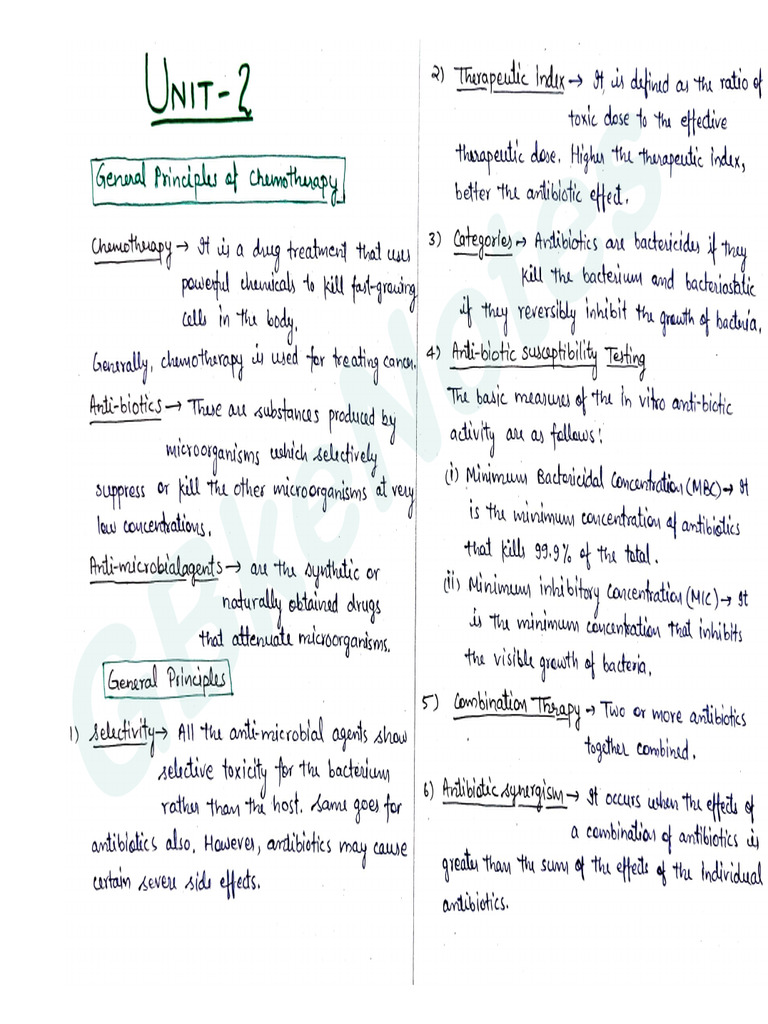 UNIT-2
General Principles of Chemotherapy
Chemotherapy → It is a drug treatment that uses
powerful chemicals to kill fast-growing
cells in the body.
Generally, chemotherapy is used for treating cancer.
Anti-biotics → These are substances produced by
microorganisms which selectively
suppress or kill the other microorganisms at very
low concentrations.
Anti-microbialagents → are the synthetic or
naturally obtained drugs
that attenuate microorganisms.
General Principles
1) Selectivity → All the anti-microbial agents show
selective toxicity for the bacterium
rather than the host. Same goes for
antibiotics also. However, antibiotics may cause
certain severe side effects.
2) Therapeutic Index → It is defined as the ratio of
toxic dose to the effective
therapeutic dose. Higher the therapeutic index,
better the antibiotic effect.
3) Categories → Antibiotics are bactericides if they
kill the bacterium and bacteriostatic
if they reversibly inhibit the growth of bacteria.
4) Anti-biotic susceptibility Testing
The basic measures of the in vitro anti-biotic
activity are as follows:
(i) Minimum Bactericidal Concentration (MBC) → It
is the minimum concentration of antibiotics
that kills 99.9% of the total.
(ii) Minimum inhibitory concentration (MIC) → It
is the minimum concentration that inhibits
the visible growth of bacteria.
5) Combination Thrapy → Two or more antibiotics
together combined.
6) Antibiotic synergism → It occurs when the effects of
a combination of antibiotics is
greater than the sum of the effects of the individual
antibiotics.
GBkeNotes